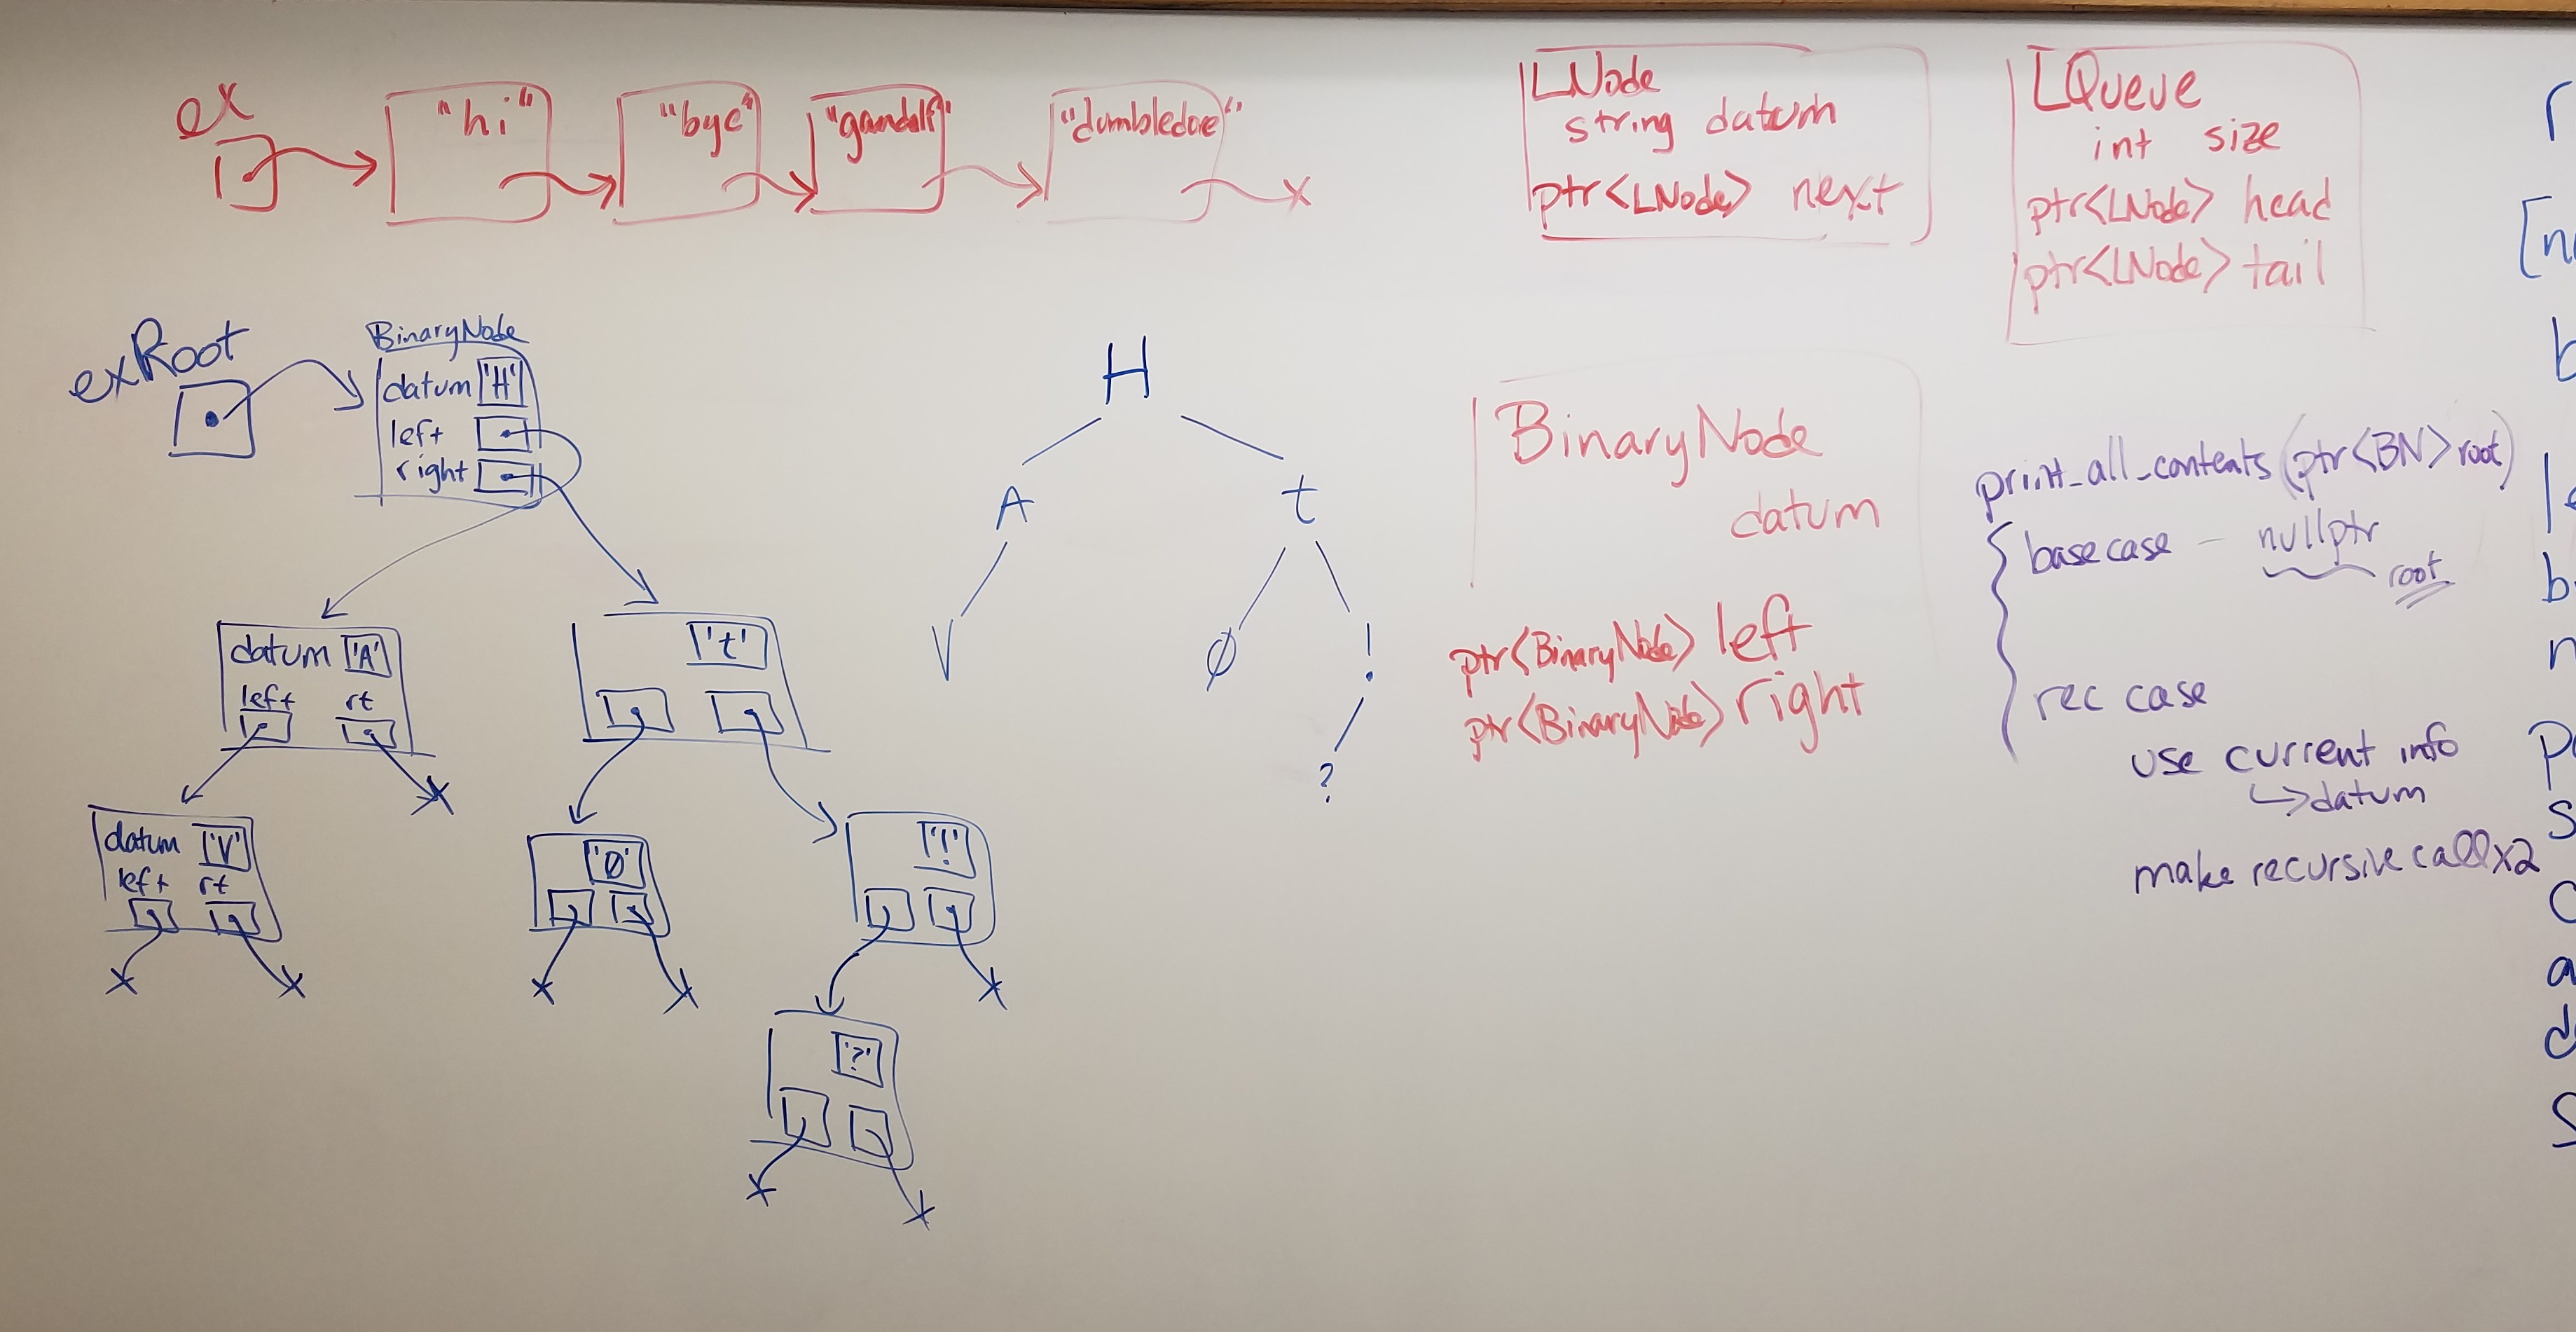 ex
"hi" "bye" "gandalf" "dumbledore"
LNode
string datum
ptr<LNode> next
LQueue
int size
ptr<LNode> head
ptr<LNode> tail
exRoot
BinaryNode
datum 'H'
left
right
datum 'A'
left rt
't'
datum 'V'
left rt
'Ø'
'!'
'?'
H
A t
V Ø !
?
BinaryNode
datum
ptr<BinaryNode> left
ptr<BinaryNode> right
print_all_contents (ptr<BN> root)
{ base case – nullptr
root
rec case
use current info
↳ datum
make recursive call x2